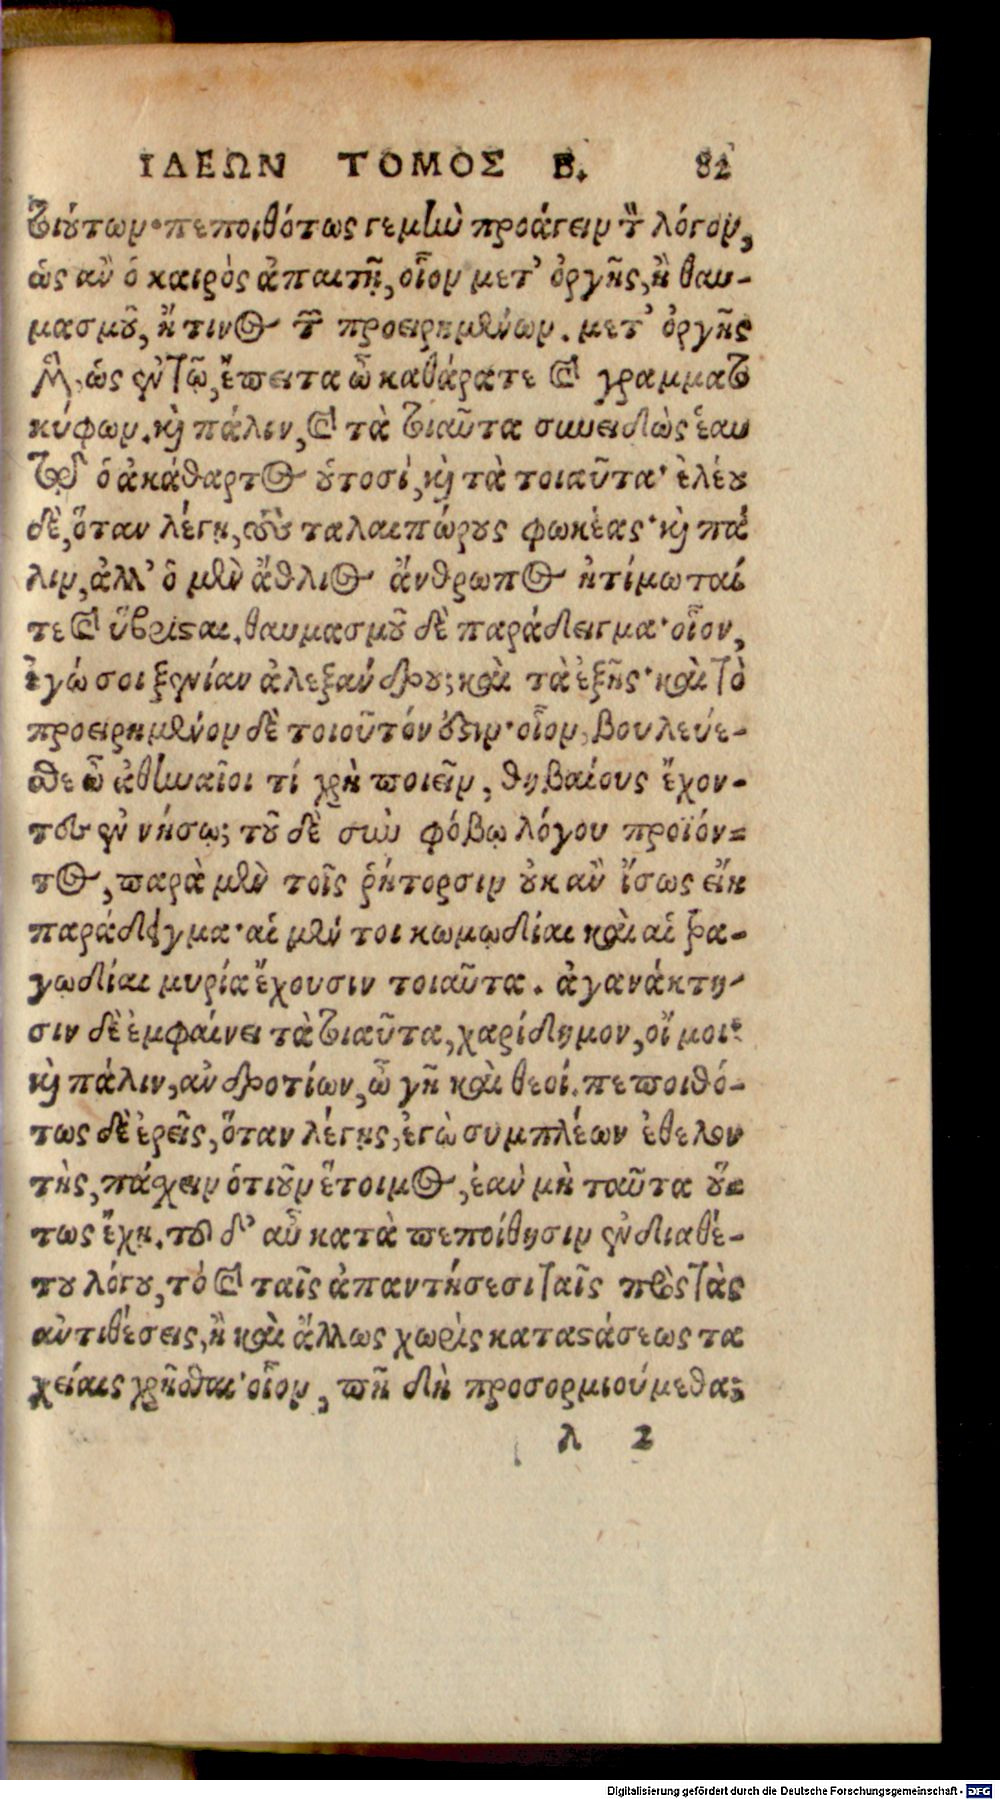 ΙΔΕΩΝ ΤΟΜΟΣ Β. 82
τοιούτων· πεποιθότως γε μὴν προάγειν τὸν λόγον,
ὡς ἂν ὁ καιρὸς ἀπαιτῇ, οἷον μετ' ὀργῆς, ἢ θαυ-
μασμοῦ, ἤ τινος τῶν προειρημένων. μετ' ὀργῆς
μὲν, ὡς ἐν τῷ, ἔπειτα ὦ κατάρατε καὶ γραμματο
κύφων. καὶ πάλιν, καὶ τὰ τοιαῦτα συνειδὼς ἑαυ
τῷ ὁ ἀκάθαρτος οὑτοσί, καὶ τὰ τοιαῦτα· ἐλέου
δὲ, ὅταν λέγῃ, τοὺς ταλαιπώρους φωκέας· καὶ πά
λιν, ἀλλ' ὁ μὲν ἄθλιος ἄνθρωπος ἠτίμωταί
τε καὶ ὕβρισται. θαυμασμοῦ δὲ παράδειγμα· οἷον,
ἐγώ σοι ξενίαν ἀλεξάνδρου; καὶ τὰ ἑξῆς· καὶ τὸ
προειρημένον δὲ τοιοῦτόν ἐστιν· οἷον, βουλεύε-
σθε ὦ ἀθηναῖοι τί χρὴ ποιεῖν, θηβαίους ἔχον-
τες ἐν νήσῳ; τοῦ δὲ σὺν φόβῳ λόγου προϊόν-
τος, παρὰ μὲν τοῖς ῥήτορσιν οὐκ ἂν ἴσως εἴη
παράδειγμα· αἱ μέν τοι κωμῳδίαι καὶ αἱ τρα-
γωδίαι μυρία ἔχουσιν τοιαῦτα. ἀγανάκτη-
σιν δὲ ἐμφαίνει τὰ τοιαῦτα, χαρίδημον, οἴ μοι·
καὶ πάλιν, ἀνδροτίων, ὦ γῆ καὶ θεοί. πεποιθό-
τως δὲ ἐρεῖς, ὅταν λέγῃς, ἐγὼ συμπλέων ἐθελον
τὴς, πάσχειν ὁτιοῦν ἕτοιμος, ἐὰν μὴ ταῦτα οὕ-
τως ἔχῃ. τοῦ δ' αὖ κατὰ πεποίθησιν ἐνδιαθέ-
του λόγου, τὸ καὶ ταῖς ἀπαντήσεσι ταῖς πρὸς τὰς
ἀντιθέσεις, ἢ καὶ ἄλλως χωρὶς καταστάσεως τα
χείαις χρῆσθαι· οἷον, πῆ δὴ προσορμιούμεθα;
λ 2
Digitalisierung gefördert durch die Deutsche Forschungsgemeinschaft - DFG